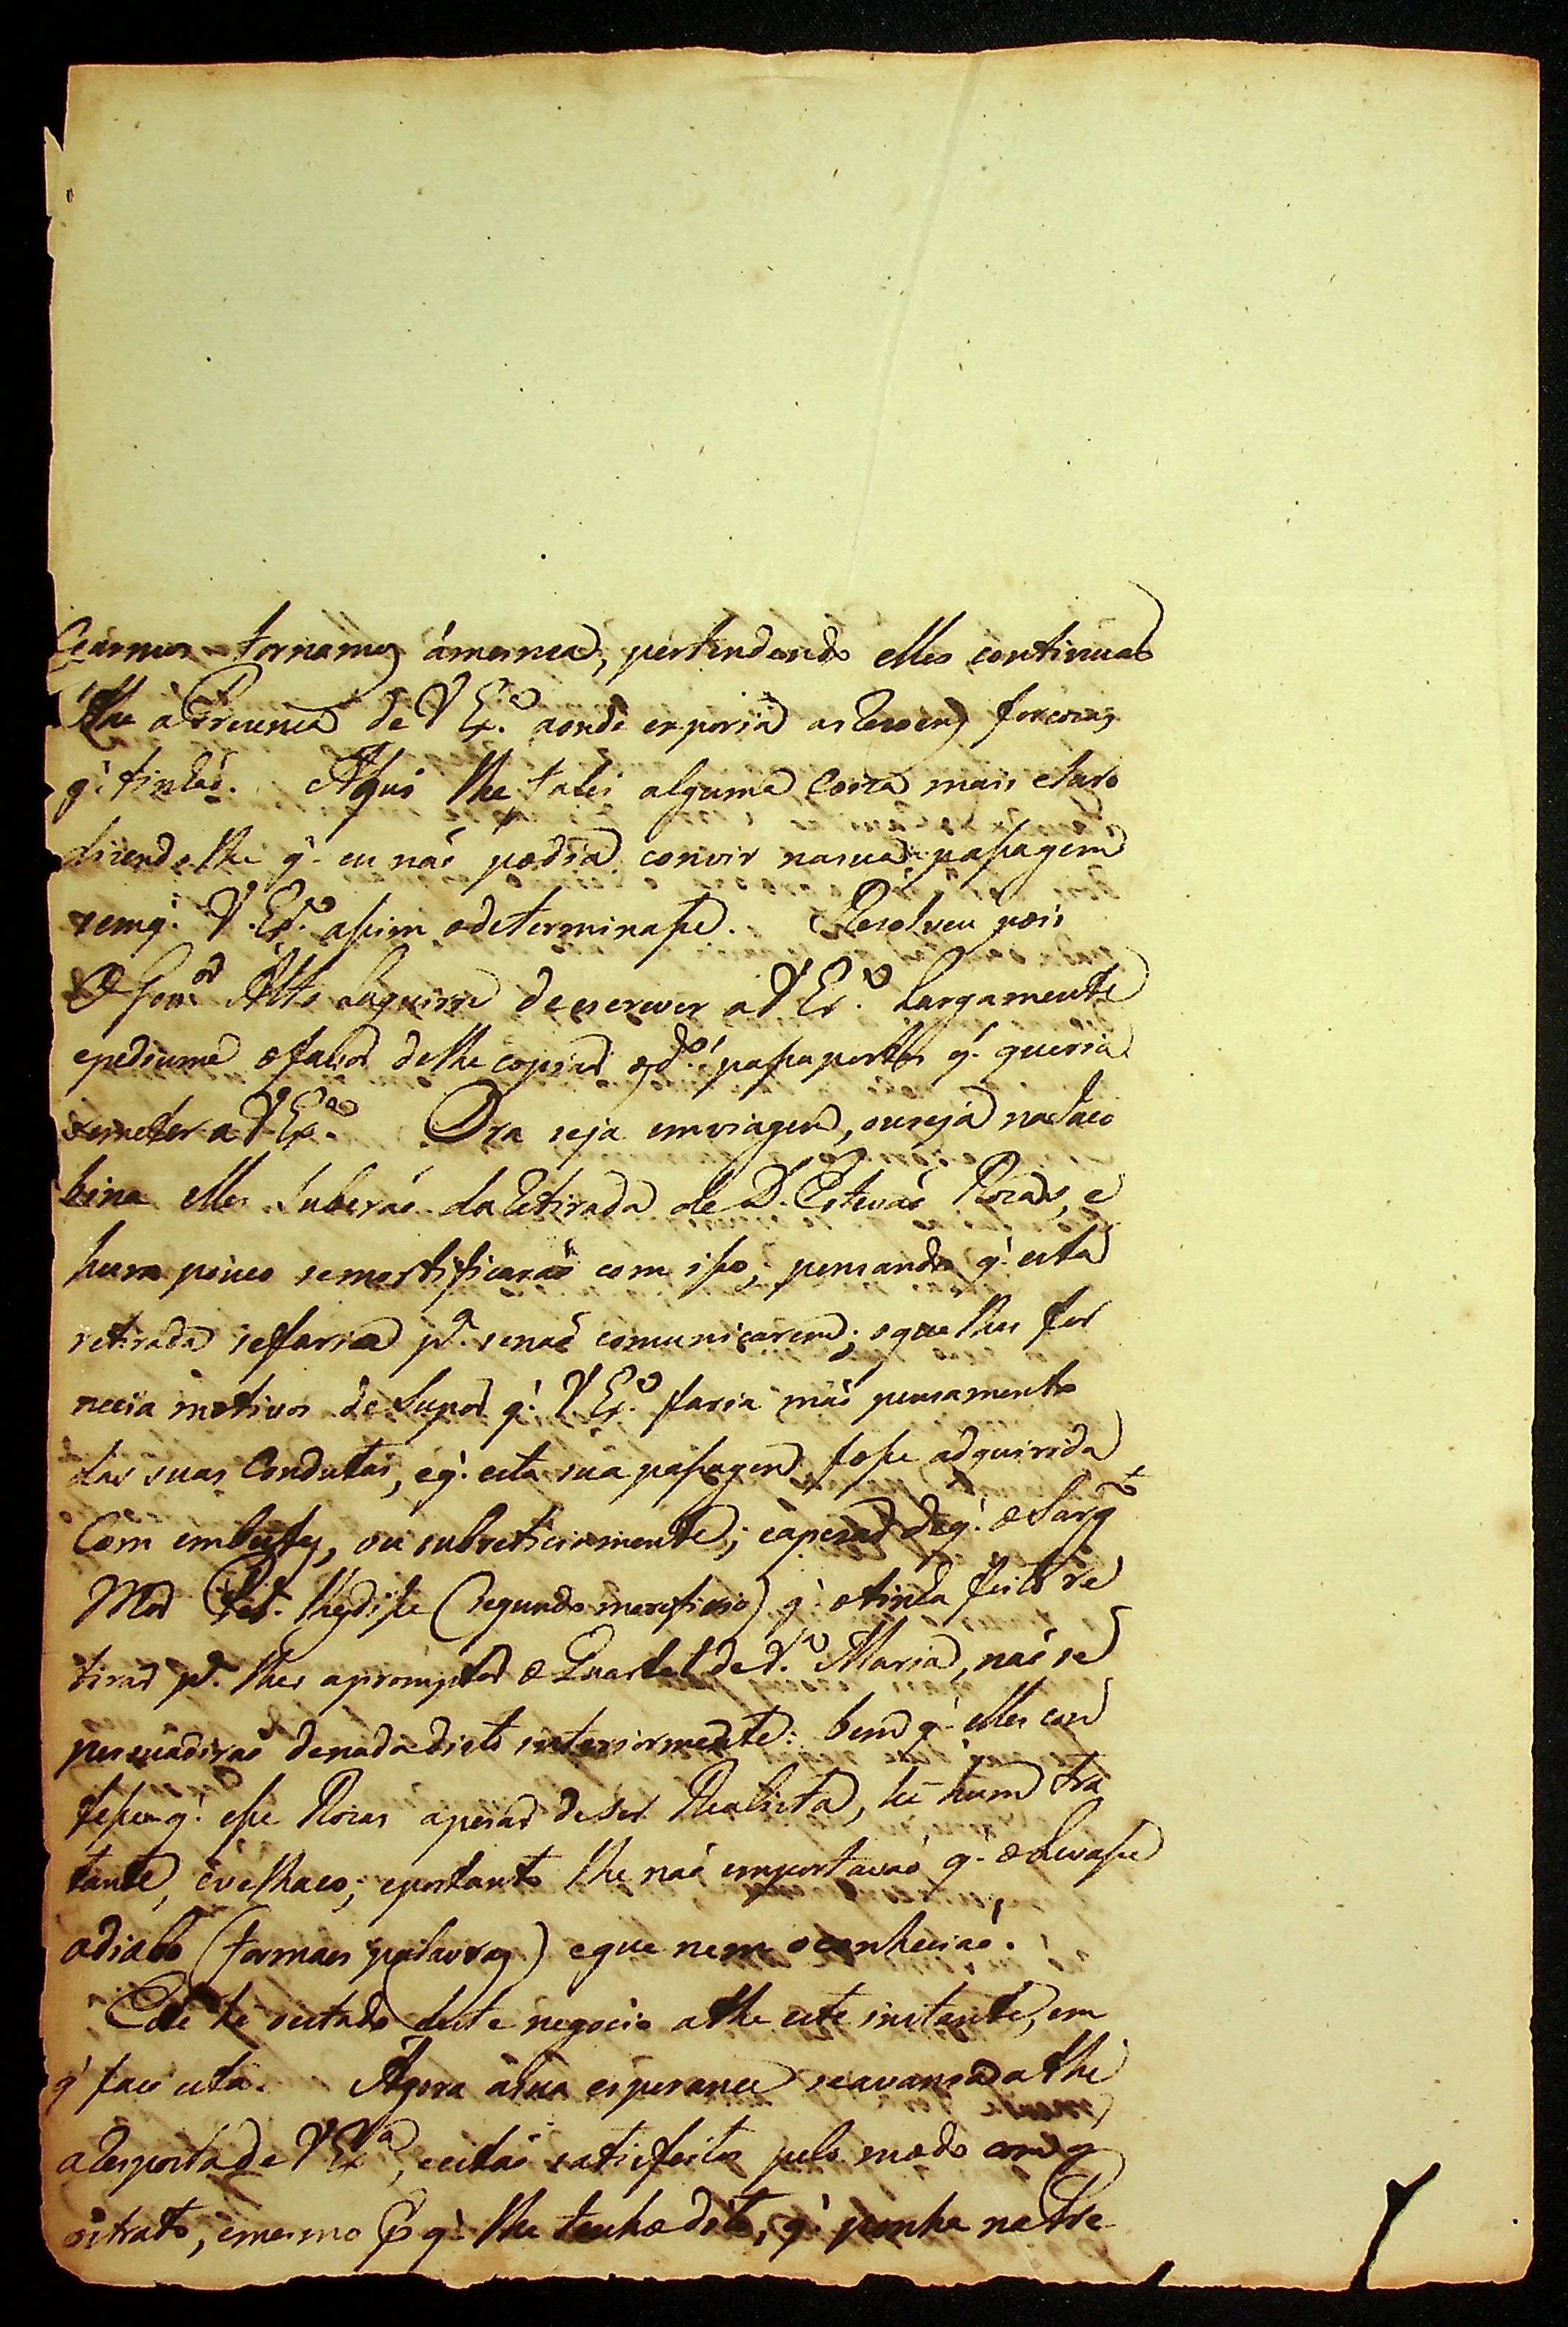 tornamos á mesma, pertendendo elles continuar
the á Prezença de V Ex.ª aonde exporia as Rezoens forçozas
q.' tinhaõ. Aqui lhe falei alguma Coiza mais claro
dizendo lhe q.' eu naõ podia convir na sua passagem
sem q.' V. Ex.ª assim o determinasse. Resolveu pois
O Gov.or Alto Laguirre de escrever a V Ex.ª Largamente
e pediume o favor de lhe copiar o d.º passaporte q.' queria
remeter a V Ex.ª Ora seja em viagem, ou seja na Jaco
bina elles Suberaõ da Retirada de D. Estevaõ Rozas, e
hum pouco se mortificaraõ com isso, pensando q.' esta
retirada se faria p.ª se naõ comunicarem; o que lhes for
necia motivos de Supor q.' V Ex.ª faria máo pensamento
das suas Condutas, e q.' esta sua passagem fosse adquirida
Com embustes, ou subreticiamente; e apezar de q.' o Sarg.to
Mor lhe disse (Segundo me referio) q.' o tinha feito re
tirar p.ª lhes apromptar o Quartel de V.ª Maria, naõ se
persuadiraõ de nada disto interiormente: bem q.' elles con
fessem q.' esse Rozas apezar de ser Realista, hé hum tra
tante, e velhaco; e portanto lhe naõ emportava q.' o Levasse
o diabo (formaes palavras) e que nem o conheciaõ.
Este hé o estado deste negocio athe este instante, em
q.' faço esta. Agora a sua esperança se avança athe
a Resposta de V Ex.ª, e estaõ satisfeitos pelo modo com q.'
os trato, e mesmo p q.' lhe tenho dito, q.' ponha na Pre